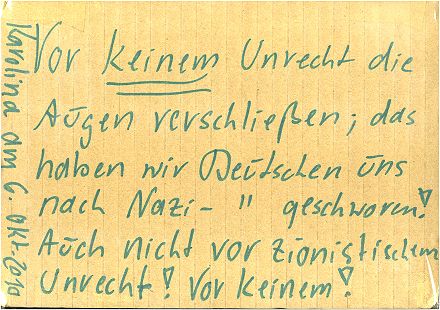 Vor keinem Unrecht die
Augen verschließen; das
haben wir Deutschen uns
nach Nazi- " geschworen!
Auch nicht vor zionistischem
Unrecht! Vor keinem!
Karolina dm 6. Okt. 2010